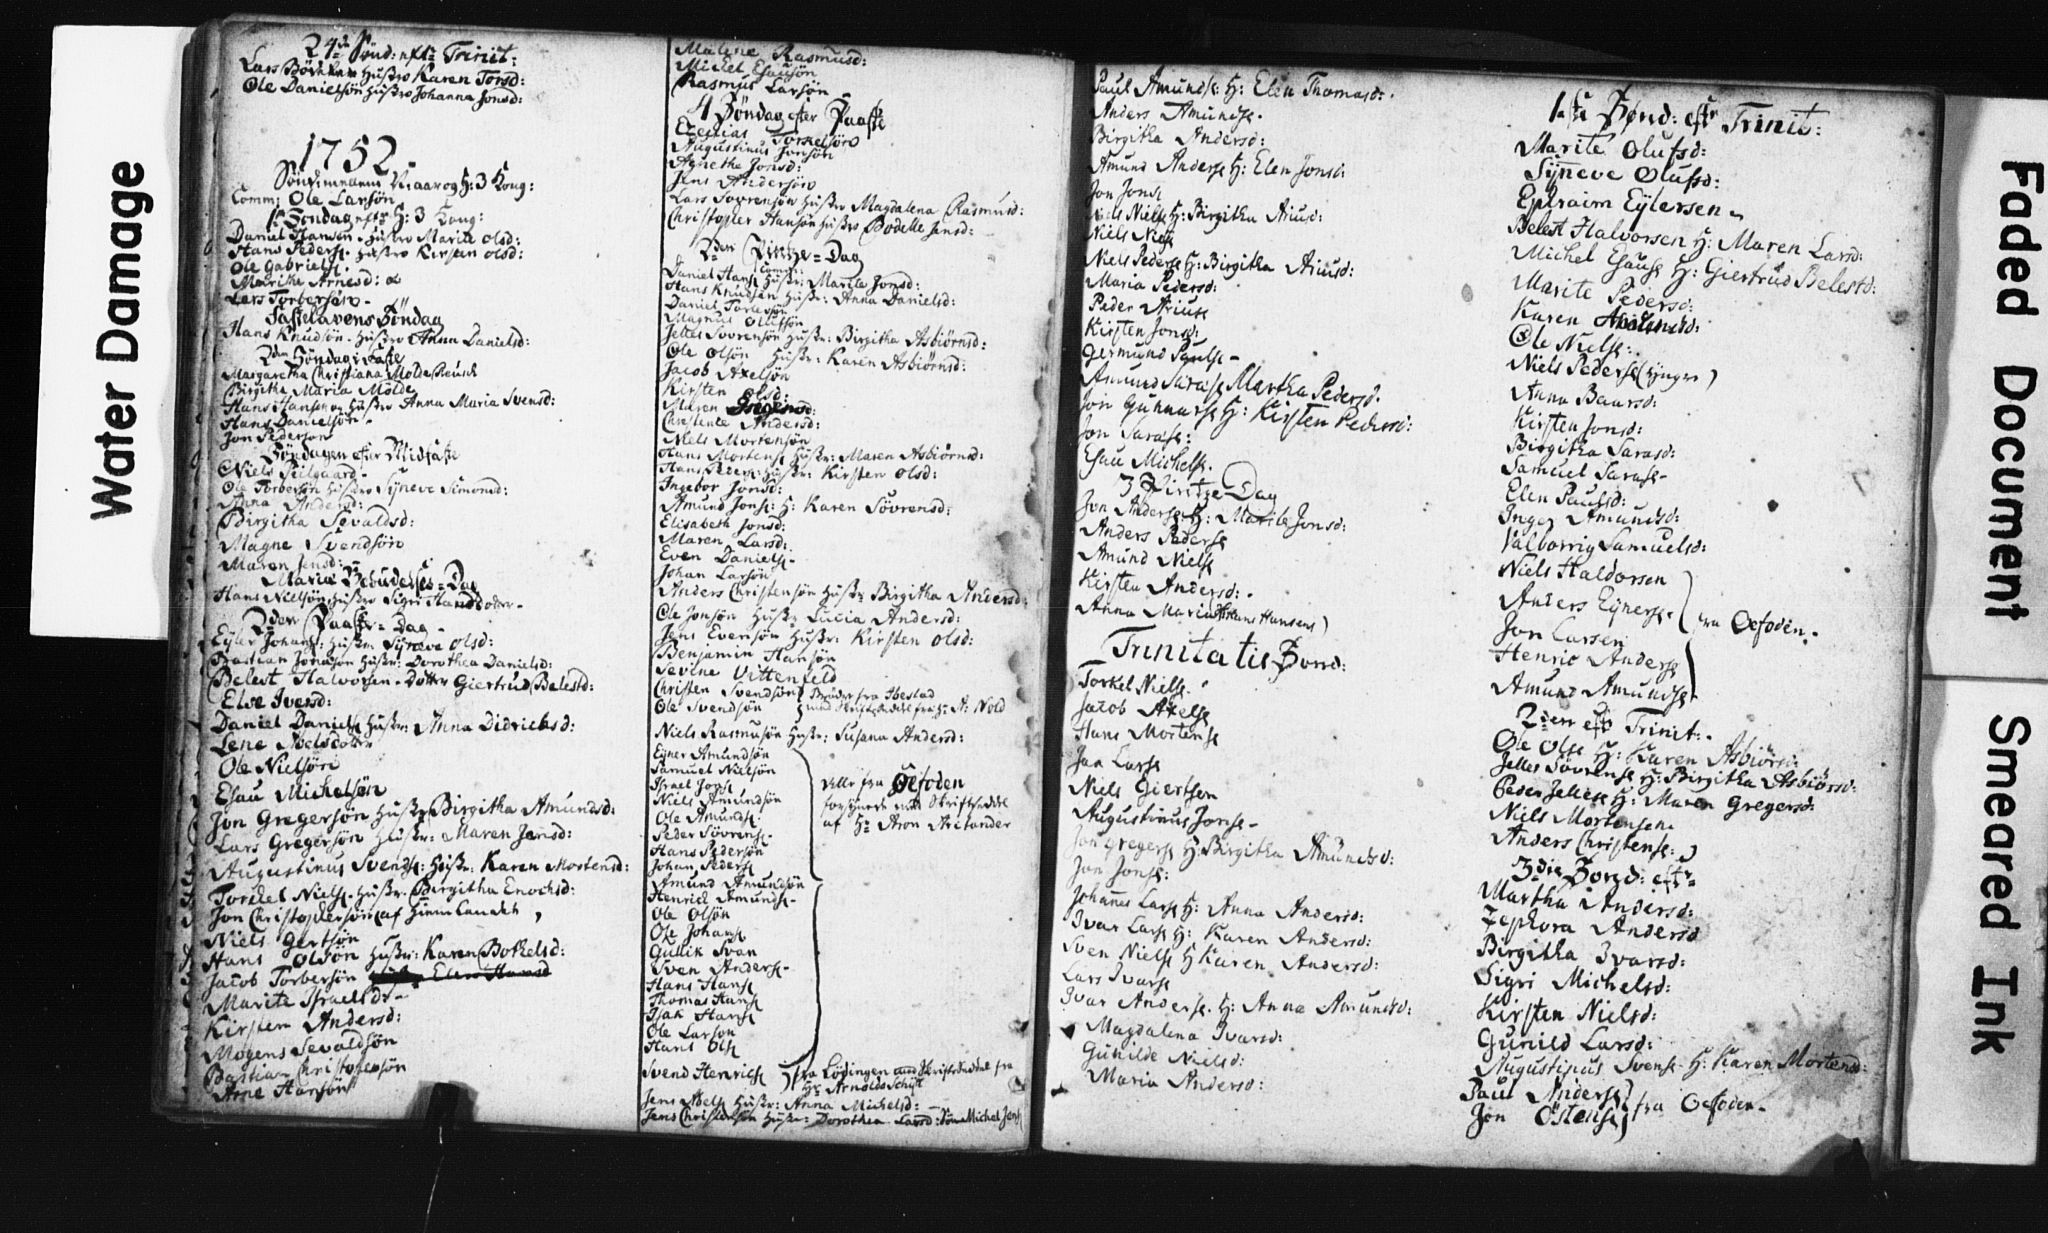 24de Sönd: efter Trinit:
Lars Hustro Karen Torsd:
Ole Danielsön Hustro Johanna Jonsd:
1752.
Sönd: mellem og H: 3 Kong:
Comm: Ole Larsön
1te Söndag efter H: 3 Kong:
Daniel Hansen. Hustro Marite Olsd:
Hans Peders. Hustro Kirsten Olsd:
Ole Gabriels.
Marithe Arnesd:
Lars Torbersön.
Fastelavens Söndag
Hans Knudsön. Hustro Anna Danielsd:
2den Söndag i Faste
Margaretha Christiana Molde
Birgithe Maria Molde
Hans Hansen Hustro Anna Maria Svensd:
Hans Danielsön.
Jon Pederson
Söndagen efter Midfaste
Niels Peilgaard.
Ole Torbersön Hustro Syneve Simonsd:
Anna Andersd:
Birgitha Sevaldsd:
Magne Svendsön
Maren Jensd:
Mariæ Bebudelses-Dag
Hans Nielsön Hustro Sigri Hansdotter.
2den Paaske-Dag.
Eyler Johans: Hustr: Syneve Olsd:
Bastian Jonasön Hustr: Dorothea Danielsd:
Belest Halvorsen. Dotter Giertrud Belestd:
Else Iversd:
Daniel Daniels Hustr: Anna Didrichsd:
Lene Noelsdotter
Ole Nielsön
Esau Michelsön
Jon Gregersön Hustr: Birgitha Amundsd:
Lars Gregersön Hustr: Maren Jensd:
Augustinus Svends: Hustr: Karen Mortensd:
Tordel Niels. Hustr: Birgitha Enochsd:
Jon Christophersön af
Niels Gertsön
Hans Olsön Hustr: Karen Botkelsd:
Jacob Torbersön Elen Hansd
Marite Israelsdr.
Kirsten Andersd:
Mogens Sevaldsön
Bastian Christophersön
Arne Hansön
Malene Rasmusd:
Michel Esausön
Rasmus Larsön
4 Söndag efter Paaske
Ezechias Torkelsön
Augustinus Jonsön
Agnethe Jonsd:
Jens Andersön
Lars Sovrensön Hustr: Magdalena Rasmusd:
Christopher Hansön Hustro Bodelle Jensd:
2den Pintze-Dag
Comm:
Daniel Hans Hustr: Marite Jonsd:
Hans Knudsen Hustr: Anna Danielsd:
Daniel Torlessön
Magnus Olufsön
Jelles Sovrensön Hustr: Birgitha Asbiörnsd:
Ole Olsön Hustr: Karen Asbiörnsd:
Jacob Axelsön
Kirsten Olsd:
Maren Gregersd:
Christente Andersd:
Niels Mortensön
Hans Mortens Hustr: Maren Asbiörnsd:
Hans Peders: Hustr: Kirsten Olsd:
Ingebor Jonsd:
Amund Jons: H: Karen Sövrensd:
Elisabeth Jonsd:
Maren Larsd:
Even Daniels.
Johan Larsön
Anders Christensön Hustr: Birgitha Andersd:
Ole Jonsön Hustr: Lucia Andersd:
Jens Evensön Hustr: Kirsten Olsd:
Benjamin Hansön
Sevine Vittenfeld
Christen Svendsön } Brödre fra Ibestad
Ole Svendsön } med Skriftseddel fra Hr: A: Nold
Niels Rasmusön Hustr: Susana Andersd:
Eyner Amundsön
Samuel Nielsön
Israel Jons
Niels Amundsön
Ole Amunds.
Peder Sövrens.
Hans Pedersön
Johan Peders
Amund Amundsön
Henrick Amunds.
Ole Olsön
Ole Johans
Gullik Svan
Sven Anders.
Hans Hans
Thomas Hans
Isak Hans
Ole Larson
Hans Ols
Alle fra Oefoden
forsynede med Skriftseddel
af Hr Aron Arctander
Svend Henrichs } fra Lödingen med Skriftseddel fra
Hr: Arnoldo Schyt
Jens Noels Hustr: Anna Michelsd:
Jens Christensön Hustr: Dorothea Larsd: Michel Jens
Paul Amunds: H: Elen Thomasd:.
Anders Amunds.
Birgitha Andersd:
Amund Anders H: Elen Jonsd:
Jon Jons
Niels Niels H: Birgitha Ariusd:
Niels Niels
Niels Peders H: Birgitha Ariusd:
Maria Pedersd:
Peder Arius
Kirsten Jonsd:
Germund Pauls.
Amund Saras Martha Pedersd.
Jon Gunnars H: Kirsten Pedersd:
Jon Saras:
Esau Michels.
3 Pintze Dag
Jon Anders. H: Marite Jonsd:
Anders Peders
Amund Niels
Kirsten Andersd:.
Anna Maria (Hans Hansens)
Trinitatis Sönd:
Torkel Niels.
Jacob Axels
Hans Mortens
Jan Lars
Niels Giertson
Augustinus Jons.
Jon Gregers H: Birgitha Amundsd:
Jon Jons:
Johanes Lars H: Anna Andersd:
Ivar Lars H: Karen Andersd:
Sven Niels H Karen Andersd:
Lars Ivars
Ivar Anders. H: Anna Amundsd:
Magdalena Ivarsd:
Gunilde Nielsd:
Maria Andersd:
1ste Sönd: eftr Trinit:
Marite Olufsd:
Syneve Olufsd:
Ephraim Eylersen
Belest Halvorsen H: Maren Larsd:
Michel Esaus H: Giertrud Belestd:
Marite Pedersd:
Karen
Ole Niels:
Niels Peders
Anna Baarsd:
Kirsten Jonsd:
Birgitha Sarasd:
Samuel Saras.
Elen Paulsd:
Inger Amundsd:
Valborrig Samuelsd:
Niels Haldorsen
Anders Eyners.
Jon Larsen
Henric Anders
Amund Amunds.
fra Oefoden.
2den eft Trinit:.
Ole Ols H: Karen Asbiörsd:
Jelles Sövrens H: Birgitha Asbiörsd:
Peder Jelles H: Maren Gregersd:
Niels Mortensen
Anders Christens:
3die Sönd: eftr
Martha Andersd:
Zephora Andersd
Birgitha Ivarsd:
Sigri Michelsd:
Kirsten Nielsd:
Gunild Larsd:
Augustinus Svens. H: Karen Mortensd:
Paul Anders
Jon Östens } fra Oefoden.
Water Damage
Faded Document
Smeared Ink